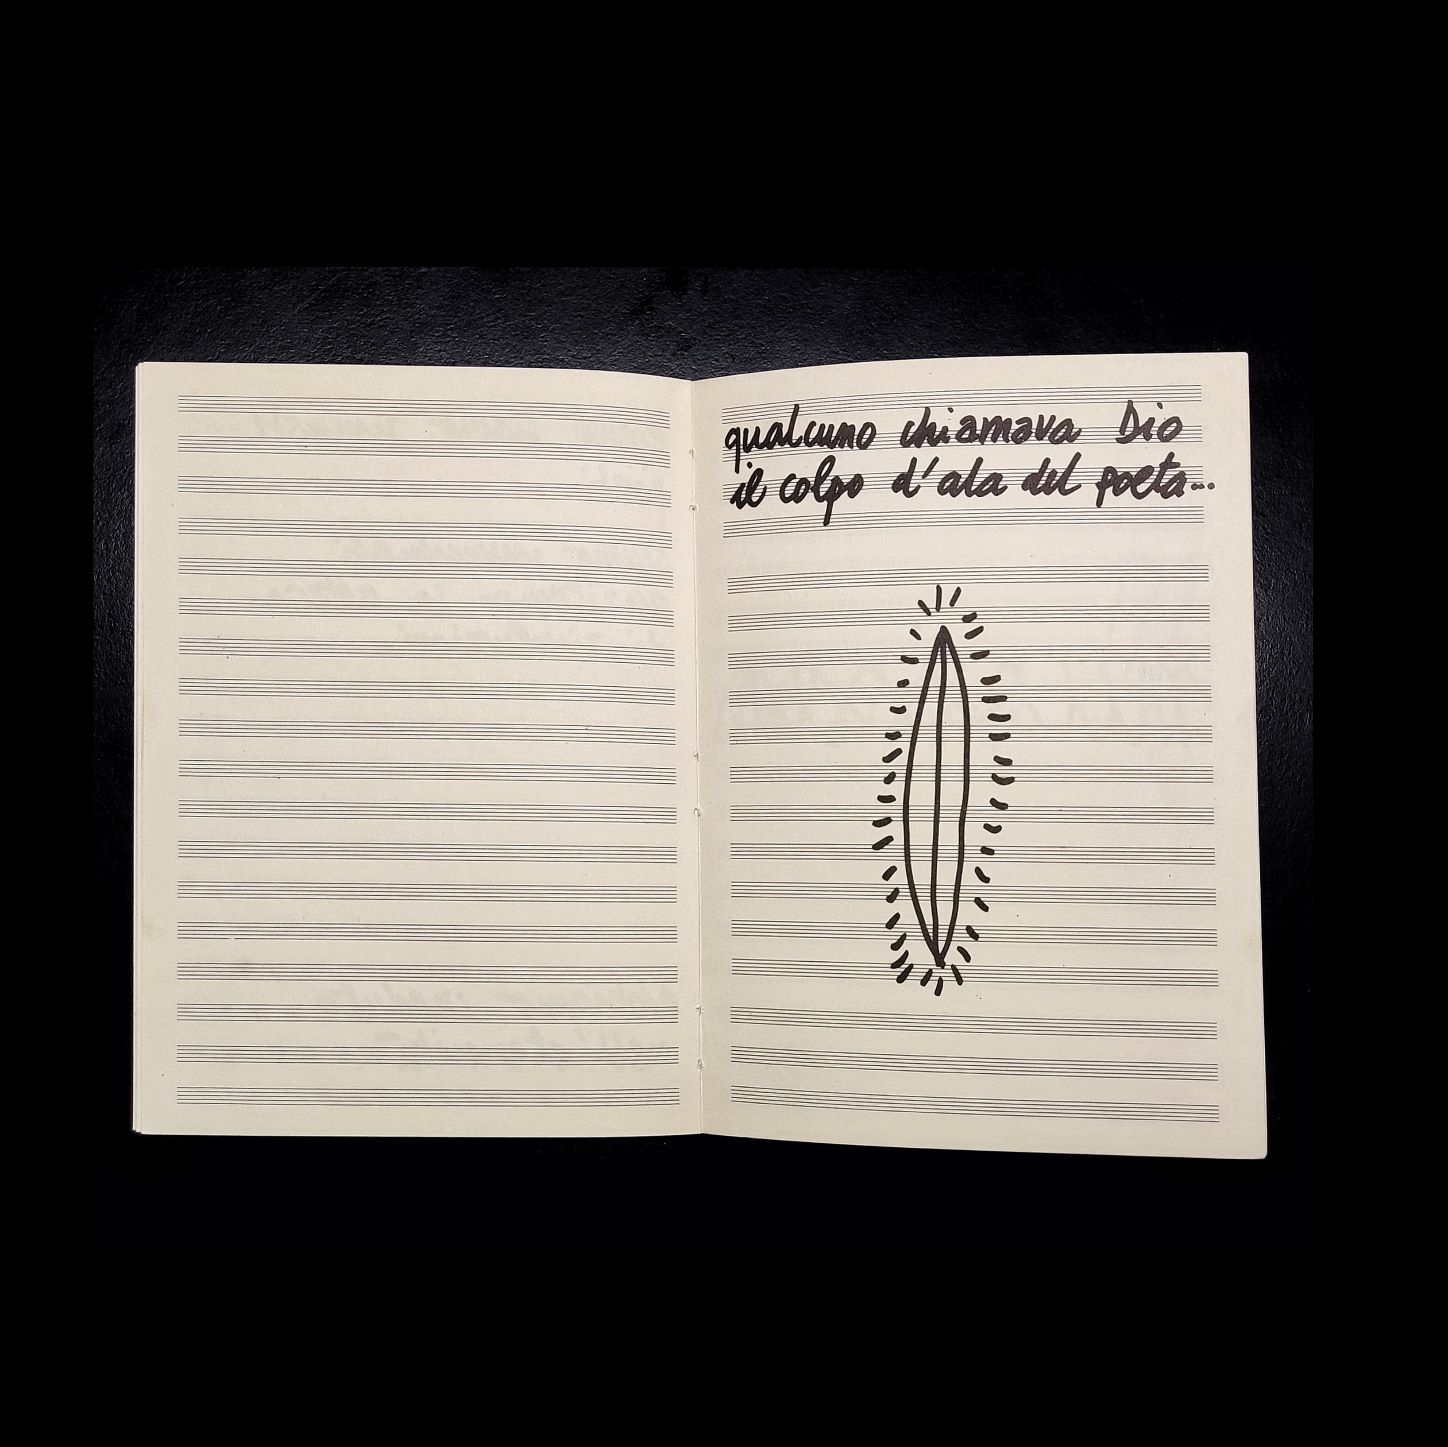 qualcuno chiamava Dio
il colpo d'ala del poeta...